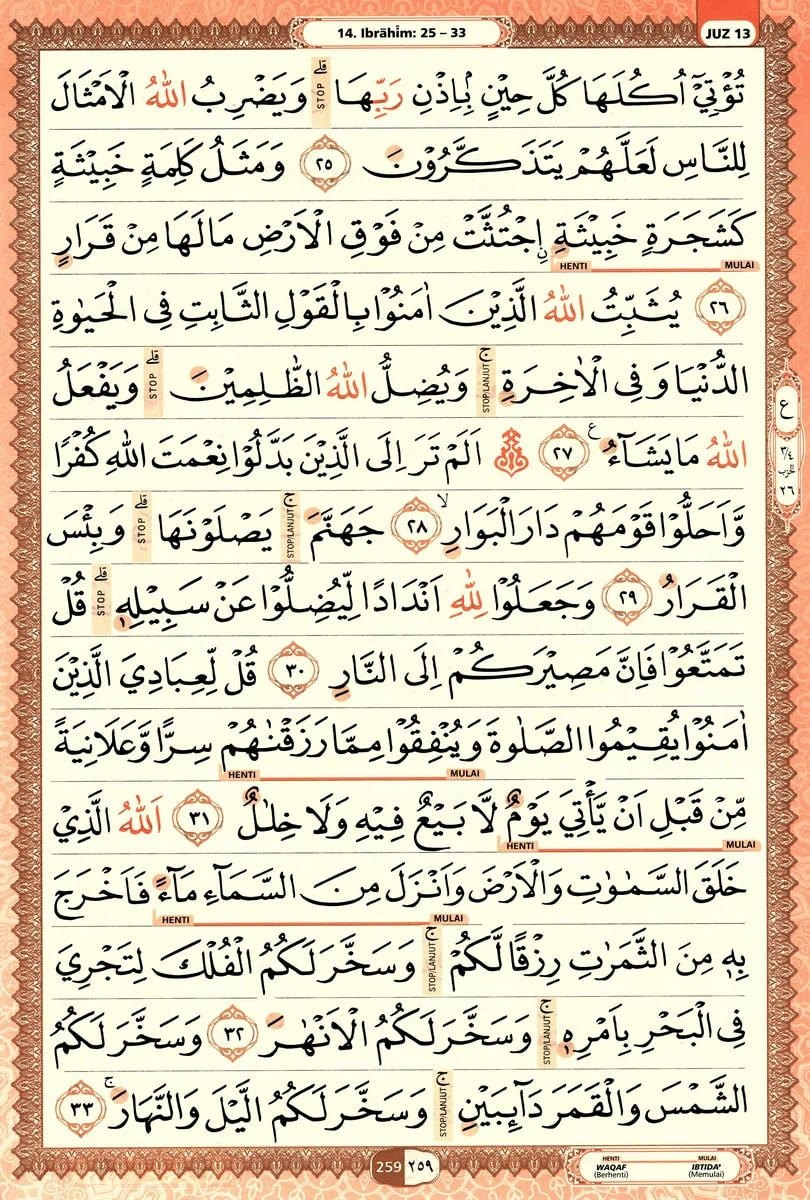 14. Ibrāhīm: 25 – 33
JUZ 13
تُؤْتِيْٓ اُكُلَهَا كُلَّ حِيْنٍۢ بِاِذْنِ رَبِّهَاۗ وَيَضْرِبُ اللّٰهُ الْاَمْثَالَ
STOP
لِلنَّاسِ لَعَلَّهُمْ يَتَذَكَّرُوْنَ ٢٥ وَمَثَلُ كَلِمَةٍ خَبِيْثَةٍ
كَشَجَرَةٍ خَبِيْثَةِ ِۨاجْتُثَّتْ مِنْ فَوْقِ الْاَرْضِ مَا لَهَا مِنْ قَرَارٍ
HENTI MULAI
٢٦ يُثَبِّتُ اللّٰهُ الَّذِيْنَ اٰمَنُوْا بِالْقَوْلِ الثَّابِتِ فِى الْحَيٰوةِ
الدُّنْيَا وَفِى الْاٰخِرَةِۚ وَيُضِلُّ اللّٰهُ الظّٰلِمِيْنَۗ وَيَفْعَلُ
STOP/LANJUT STOP
اللّٰهُ مَا يَشَاۤءُ ࣖ ٢٧ اَلَمْ تَرَ اِلَى الَّذِيْنَ بَدَّلُوْا نِعْمَتَ اللّٰهِ كُفْرًا
ع
٣/٤
الحزب
٢٦
وَّاَحَلُّوْا قَوْمَهُمْ دَارَ الْبَوَارِۙ ٢٨ جَهَنَّمَۚ يَصْلَوْنَهَاۗ وَبِئْسَ
STOP/LANJUT STOP
الْقَرَارُ ٢٩ وَجَعَلُوْا لِلّٰهِ اَنْدَادًا لِّيُضِلُّوْا عَنْ سَبِيْلِهٖۗ قُلْ
STOP
تَمَتَّعُوْا فَاِنَّ مَصِيْرَكُمْ اِلَى النَّارِ ٣٠ قُلْ لِّعِبَادِيَ الَّذِيْنَ
اٰمَنُوْا يُقِيْمُوا الصَّلٰوةَ وَيُنْفِقُوْا مِمَّا رَزَقْنٰهُمْ سِرًّا وَّعَلَانِيَةً
HENTI MULAI
مِّنْ قَبْلِ اَنْ يَّأْتِيَ يَوْمٌ لَّا بَيْعٌ فِيْهِ وَلَا خِلٰلٌ ٣١ اَللّٰهُ الَّذِيْ
HENTI MULAI
خَلَقَ السَّمٰوٰتِ وَالْاَرْضَ وَاَنْزَلَ مِنَ السَّمَاۤءِ مَاۤءً فَاَخْرَجَ
HENTI MULAI
بِهٖ مِنَ الثَّمَرٰتِ رِزْقًا لَّكُمْۚ وَسَخَّرَ لَكُمُ الْفُلْكَ لِتَجْرِيَ
STOP/LANJUT
فِى الْبَحْرِ بِاَمْرِهٖۚ وَسَخَّرَ لَكُمُ الْاَنْهٰرَ ٣٢ وَسَخَّرَ لَكُمُ
STOP/LANJUT
الشَّمْسَ وَالْقَمَرَ دَاۤىِٕبَيْنِۚ وَسَخَّرَ لَكُمُ الَّيْلَ وَالنَّهَارَۚ ٣٣
STOP/LANJUT
259 ٢٥٩
HENTI MULAI
WAQAF IBTIDA'
(Berhenti) (Memulai)